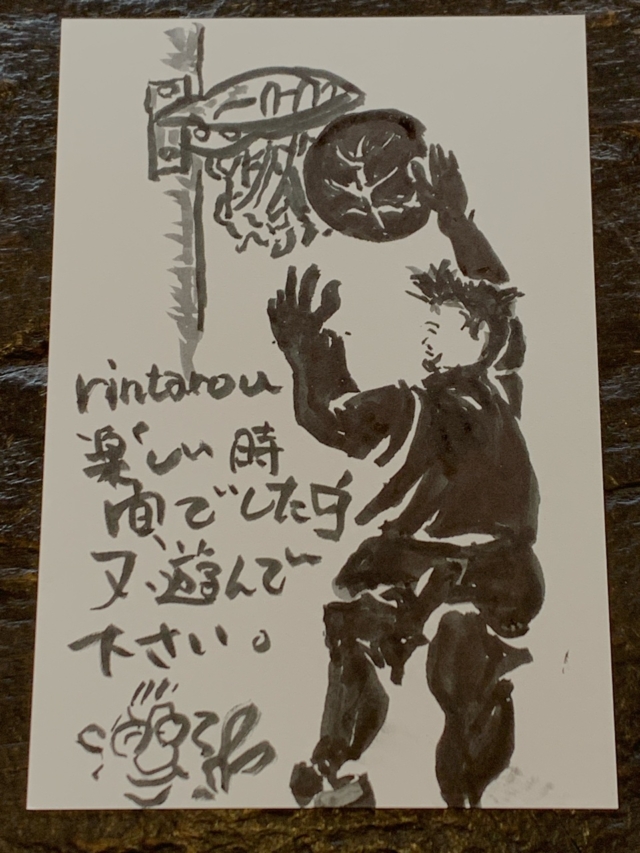 rintarou
楽しい時
間でしたよ
又、遊んで
下さい。